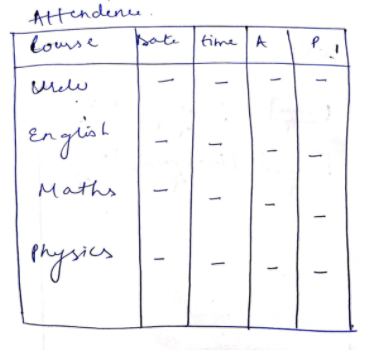 Attendence.
Course Date time A P
Urdu - - - -
English - - - -
Maths - - - -
Physics - - - -